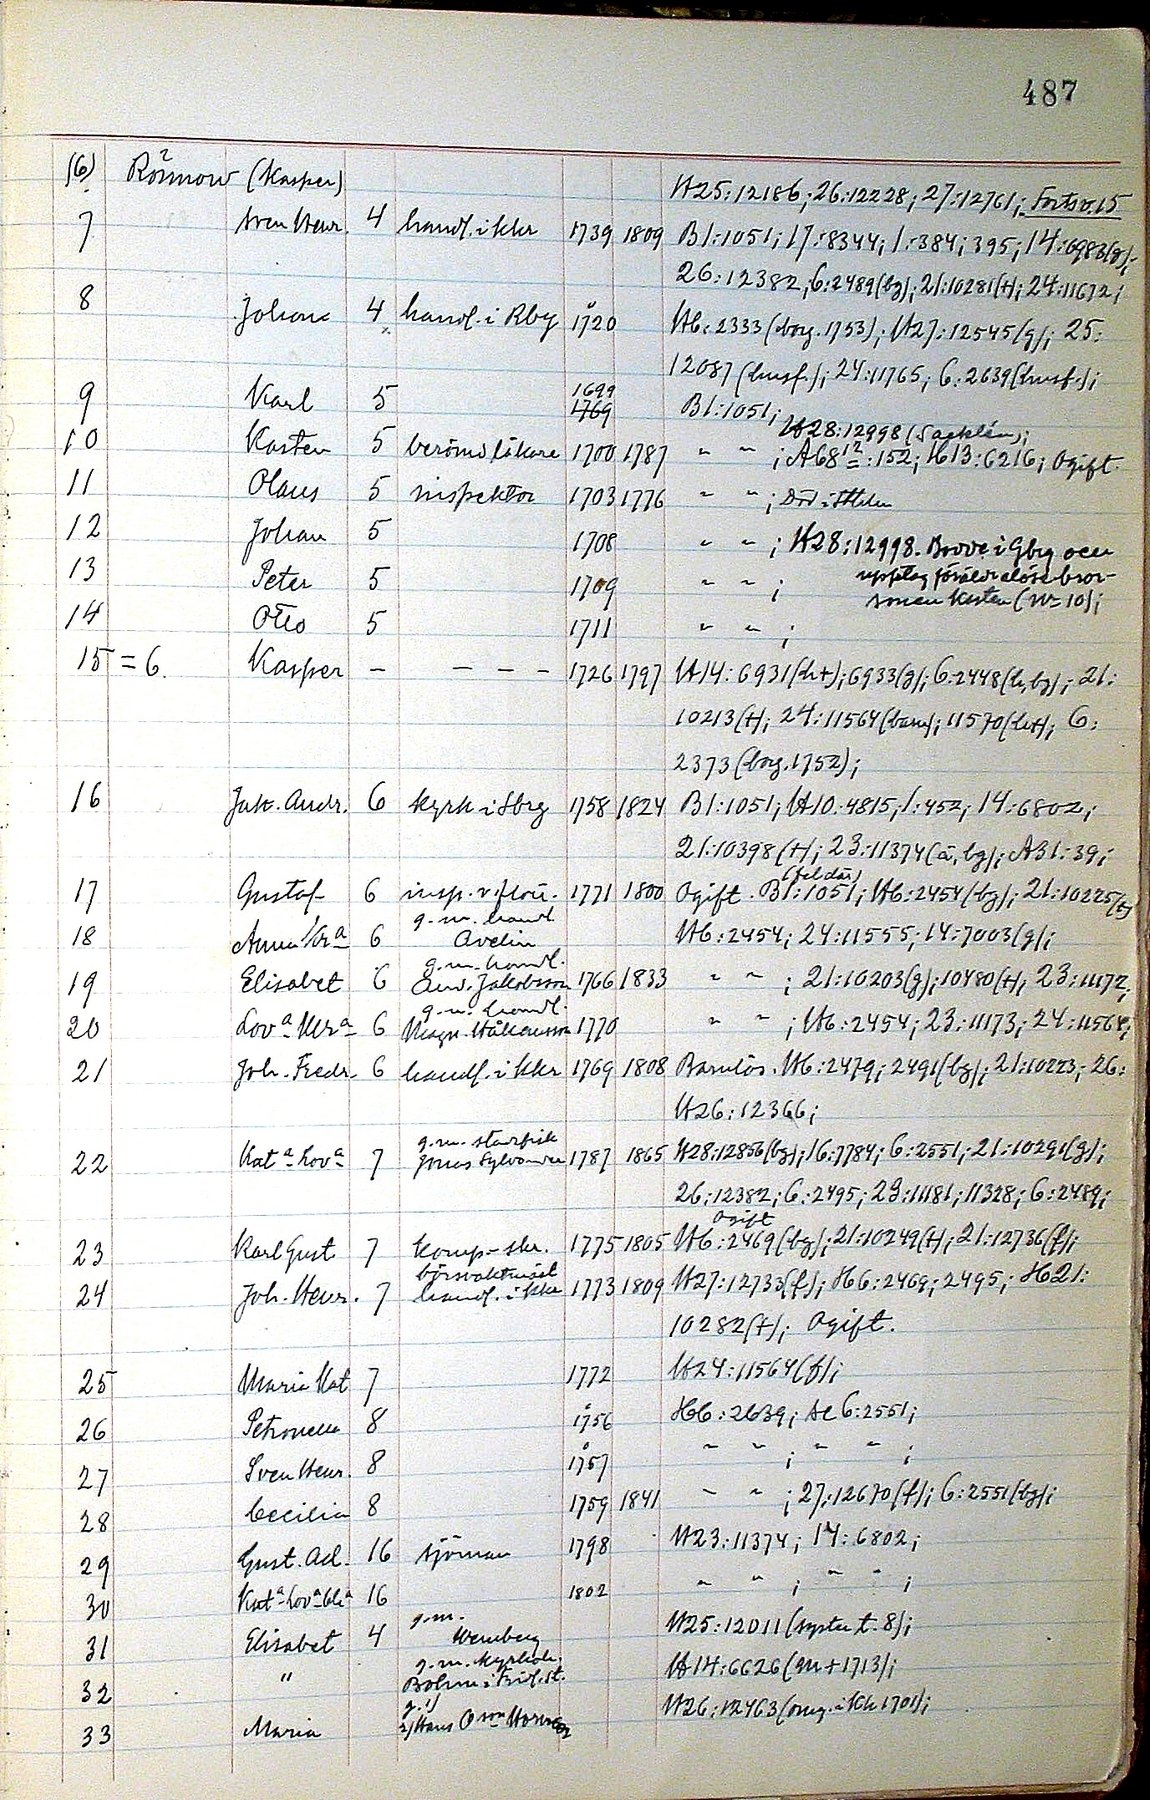 487
(6) Rönnow (Kasper) H25:12186; 26:12228; 27:12761; Forts. 15
7 Sven Henr. 4 handl. i Kkr 1739 1809 B1:1051; 17:8344; 1:384; 395; 14:6983(g);
26:12382; 6:2489(bg); 21:10281(+); 24:11672;
8 Johan 4 handl. i Rby 1720 H6:2333 (borg. 1753); H27:12545(g); 25:
12087 (husf.); 24:11765; 6:2639(husf.);
1699
9 Karl 5 1769 B1:1051;
H28:12998 (Sacklén);
10 Kasten 5 berömd läkare 1700 1787 " " ; A68:152; H13:6216; Ogift.
11 Olaus 5 inspektor 1703 1776 " " ; Död i
12 Johan 5 1708 " " ; H28:12998. Bodde i Gbg och
13 Peter 5 1709 " " ; upptog föräldralöse bror-
sonen Kasten (No 10);
14 Otto 5 1711 " " ;
15 = 6. Kasper – – – – 1726 1797 H14:6931(h+); 6933(g); 6:2448(h, bg); 21:
10213(+); 24:11564(barn); 11570(h+); 6:
2373 (borg. 1752);
16 Jak. Andr. 6 kyrk i Sbrg 1758 1824 B1:1051; H10:4815; 1:452; 14:6802;
21:10398(+); 23:11374(ä, bg); A31:39;
17 Gustaf 6 insp. v. 1771 1800 Ogift. B1:1051; H6:2454(bg); 21:10225(+)
g.m. handl.
18 Anna Kra 6 Avelin H6:2454; 24:11555; 14:7003(g);
g.m. handl.
19 Elisabet 6 And. Jakobsson 1766 1833 " " ; 21:10203(g); 10480(+); 23:11172;
g.m. handl.
20 Lova Ulra 6 Magn. Håkansson 1770 " " ; H6:2454; 23:11173; 24:11564;
21 Joh. Fredr. 6 handl. i Kkr 1769 1808 Barnlös. H6:2479; 2491(bg); 21:10223; 26:
H26:12366;
g.m. stadsfisk
22 Kata Lova 7 Jonas Sylvander 1787 1865 H28:12856(bg); 16:7784; 6:2551; 21:10291(g);
26:12382; 6:2495; 23:11181; 11328; 6:2489;
Ogift
23 Karl Gust. 7 komp.-skr. 1775 1805 H6:2469(bg); 21:10249(+); 21:12736(f);
24 Joh. Henr. 7 handl. i Kkr 1773 1809 H27:12733(f); H6:2469; 2495; H21:
10282(+); Ogift.
25 Maria Kat. 7 1772 H24:11564(f);
26 Petronella 8 1756 H6:2639; H6:2551;
27 Sven Henr. 8 1757 " " ; " " ;
28 Cecilia 8 1759 1841 " " ; 27:12670(f); 6:2551(bg);
29 Gust. Ad. 16 sjöman 1798 H23:11374; 14:6802;
30 Kata Lova Ula 16 1802 " " ; " " ;
g.m.
31 Elisabet 4 Wernberg H25:12011 (syster t. 8);
g.m. kyrkoh.
32 " Böhm i Frid.st. H14:6626 (m + 1713);
g. 1)
33 Maria 2) Hans Oson H26:12463 (omg. i Kh 1701);